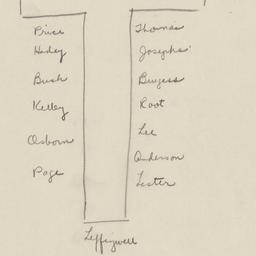 Price
Hadey
Bush
Kelley
Osborn
Page
Thomas
Josephs
Burgess
Root
Lee
Anderson
Lester
Leffingwell